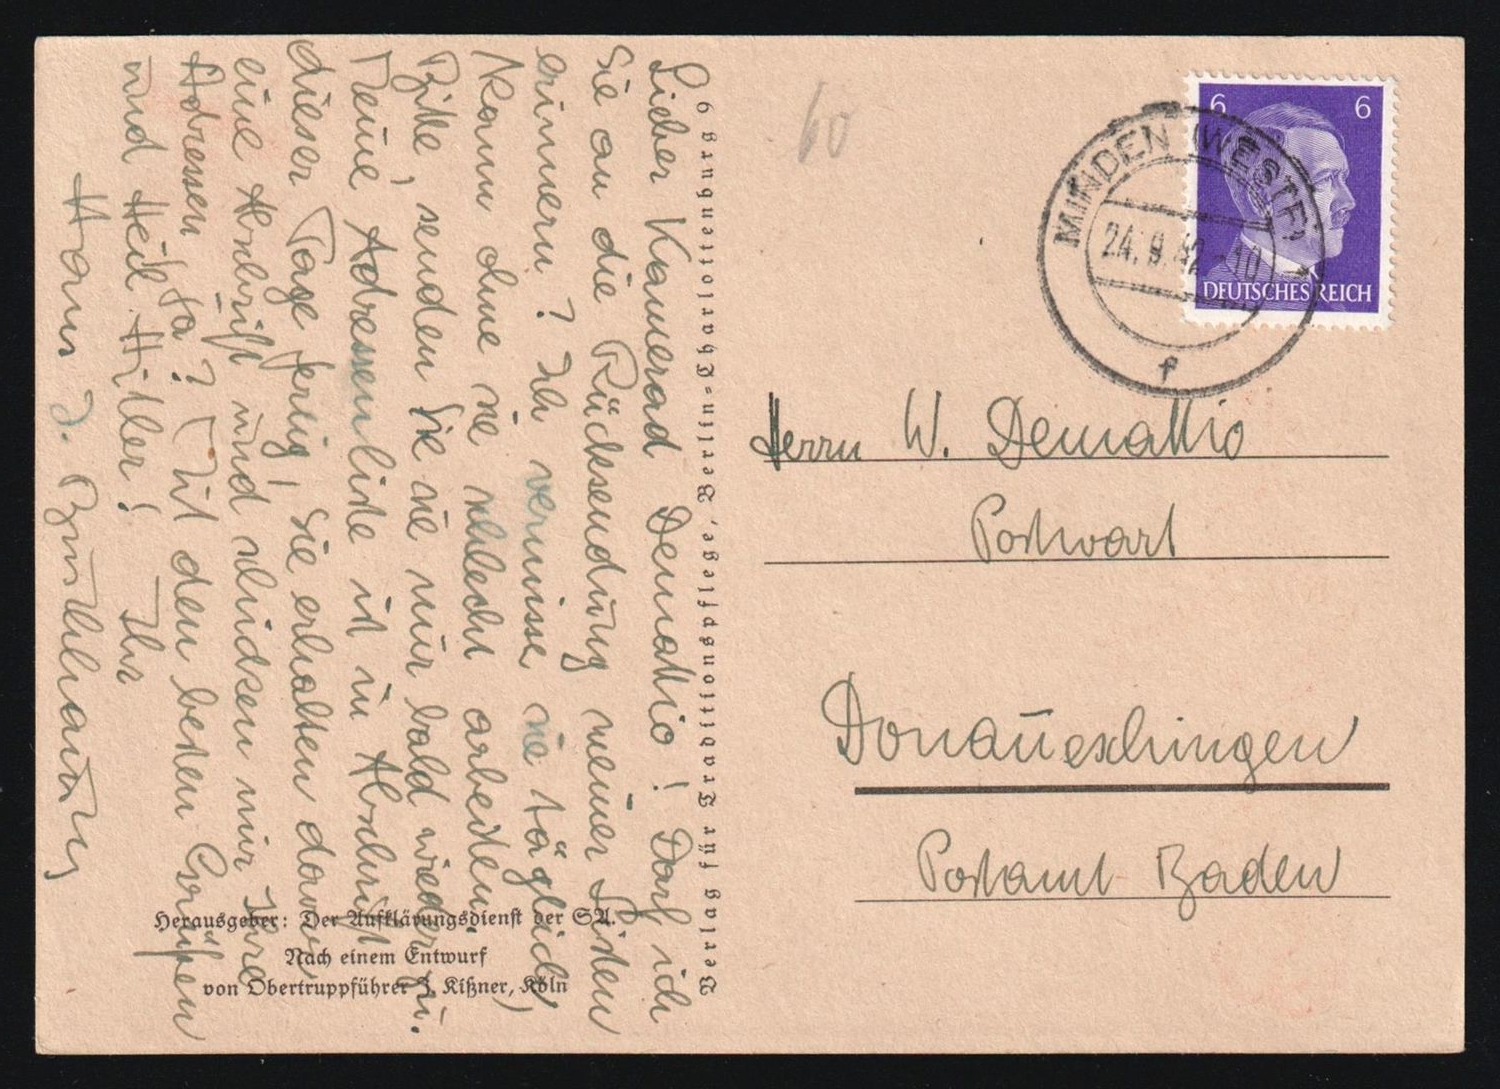 Lieber Kamerad Demattio! Darf ich
Sie an die Rücksendung meiner Listen
erinnern? Ich vermisse sie täglich,
kann ohne sie schlecht arbeiten!
Bitte, senden Sie sie nur bald wieder zu.
Meine Adressenliste ist in Abschrift
dieser Tage fertig! Sie erhalten davon
eine Abschrift und schicken mir Ihre
Adressen. Ja? Mit den besten Grüßen
und Heil Hitler! Ihr
Hans J.
Verlag für Traditionspflege, Berlin-Charlottenburg 9
Herausgeber: Der Aufklärungsdienst der SA.
Nach einem Entwurf
von Obertruppführer J. Kißner, Köln
60
6 6
DEUTSCHES REICH
MINDEN (WESTF)
24.9.42.-10
f
Herrn W. Demattio
Postwart
Donaueschingen
Postamt-Baden